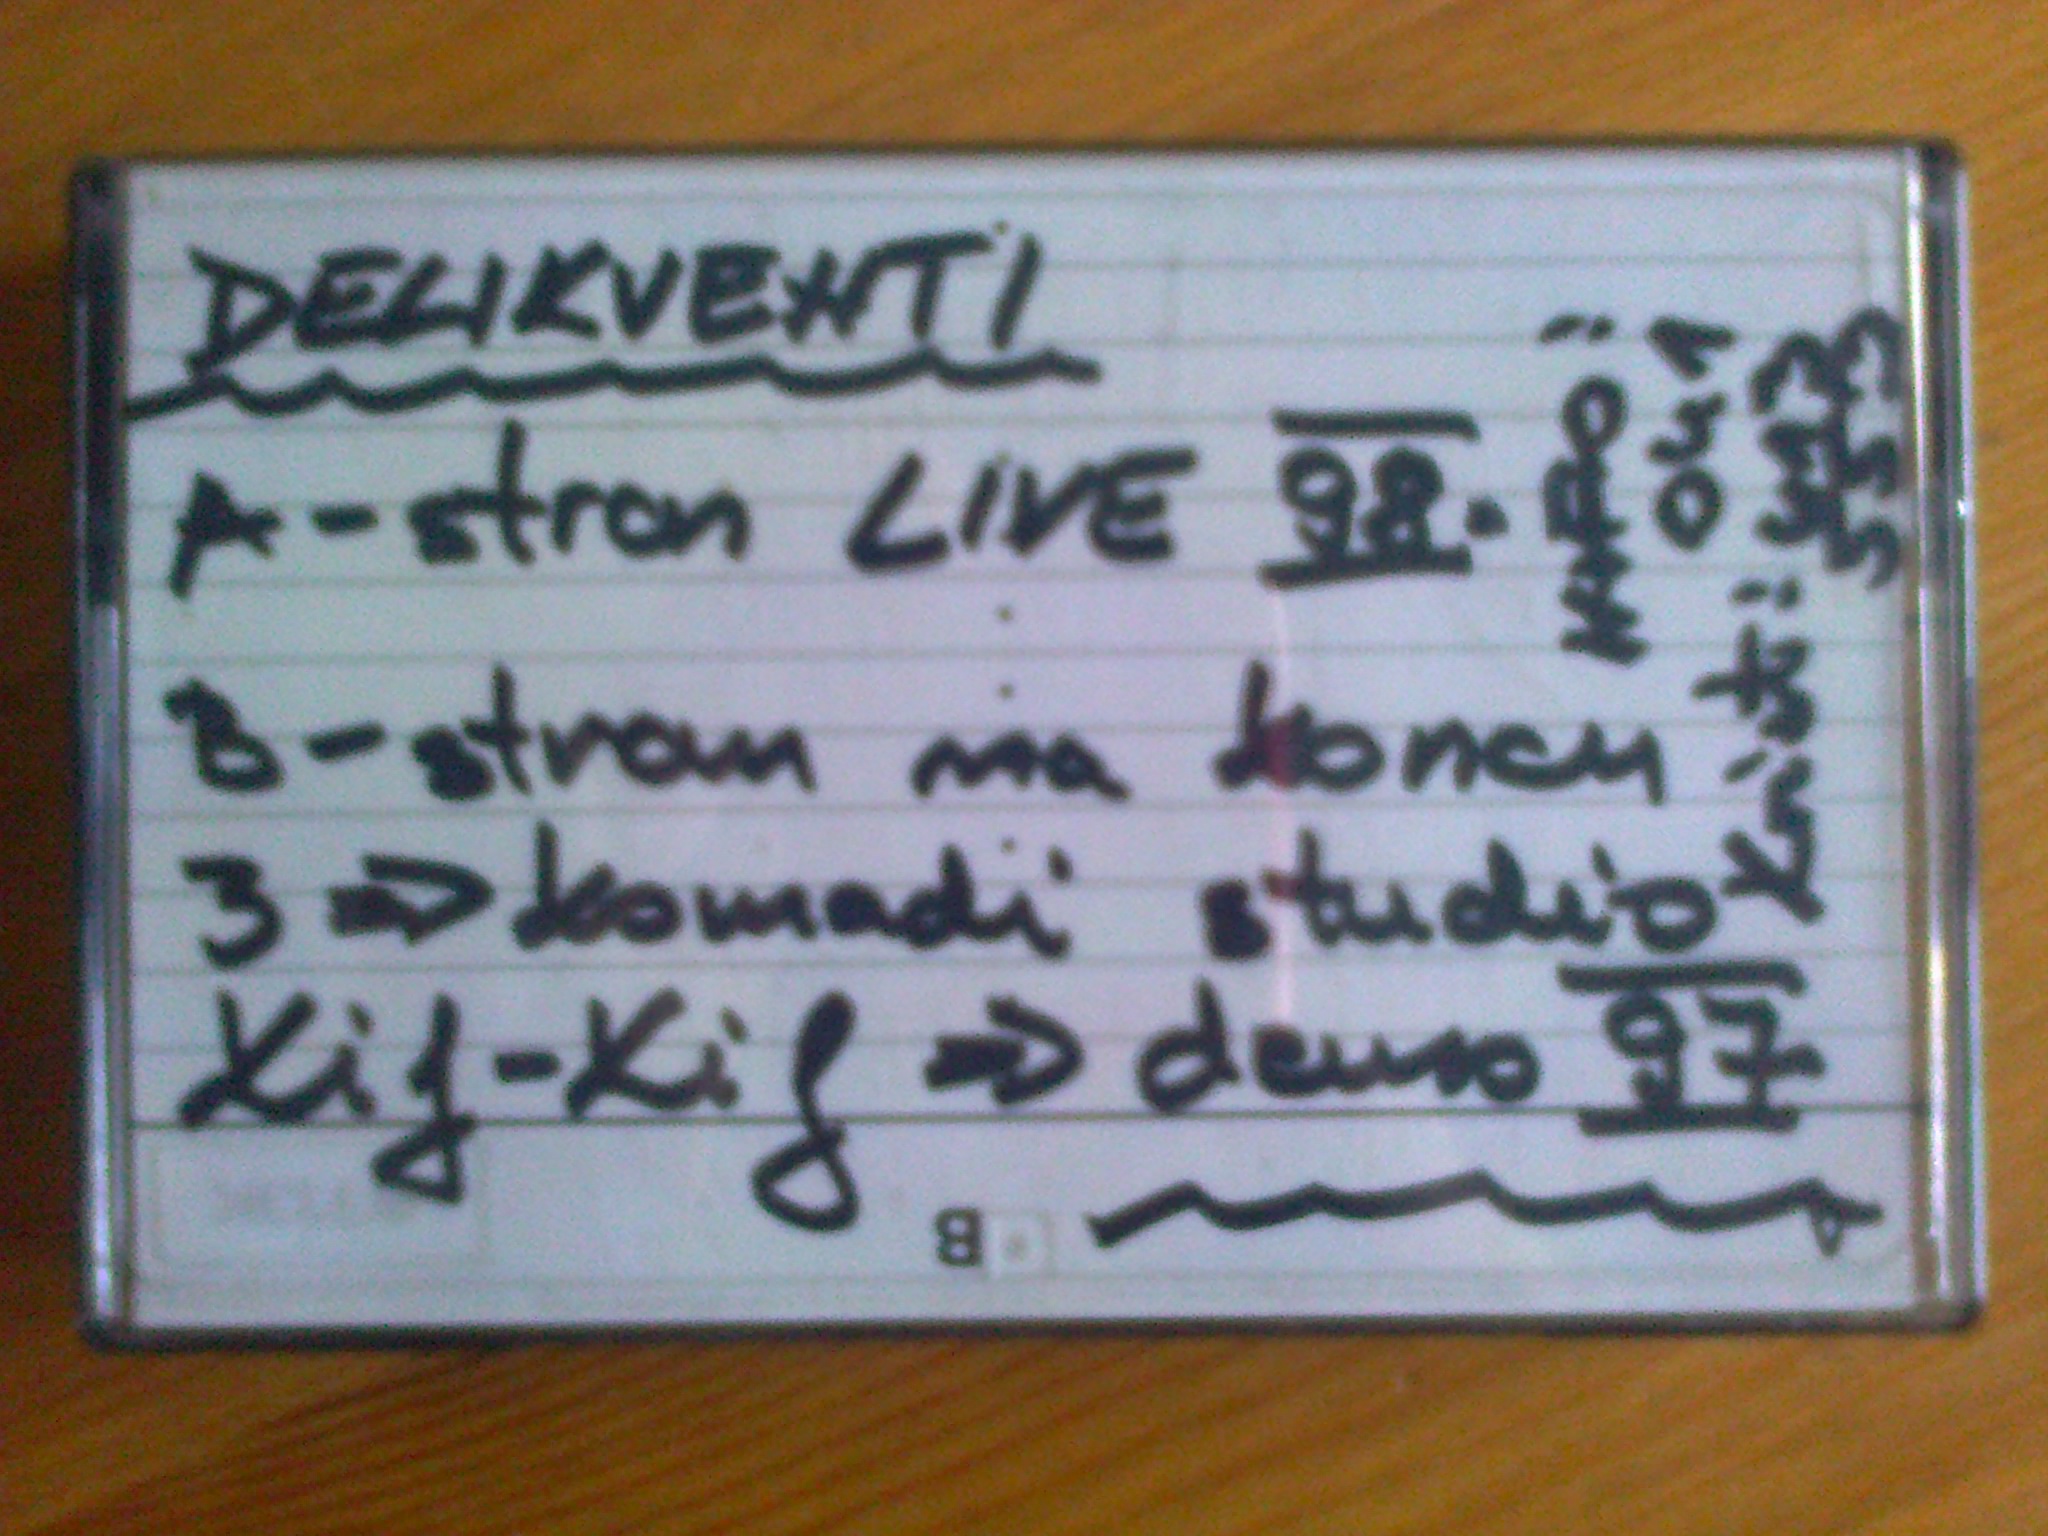 DELIKVENTI
A-stran LIVE 98.
B-stran na koncu
3 ⇒ komadi studio
Kif-Kif ⇒ demo 97
B
041
Kristi: